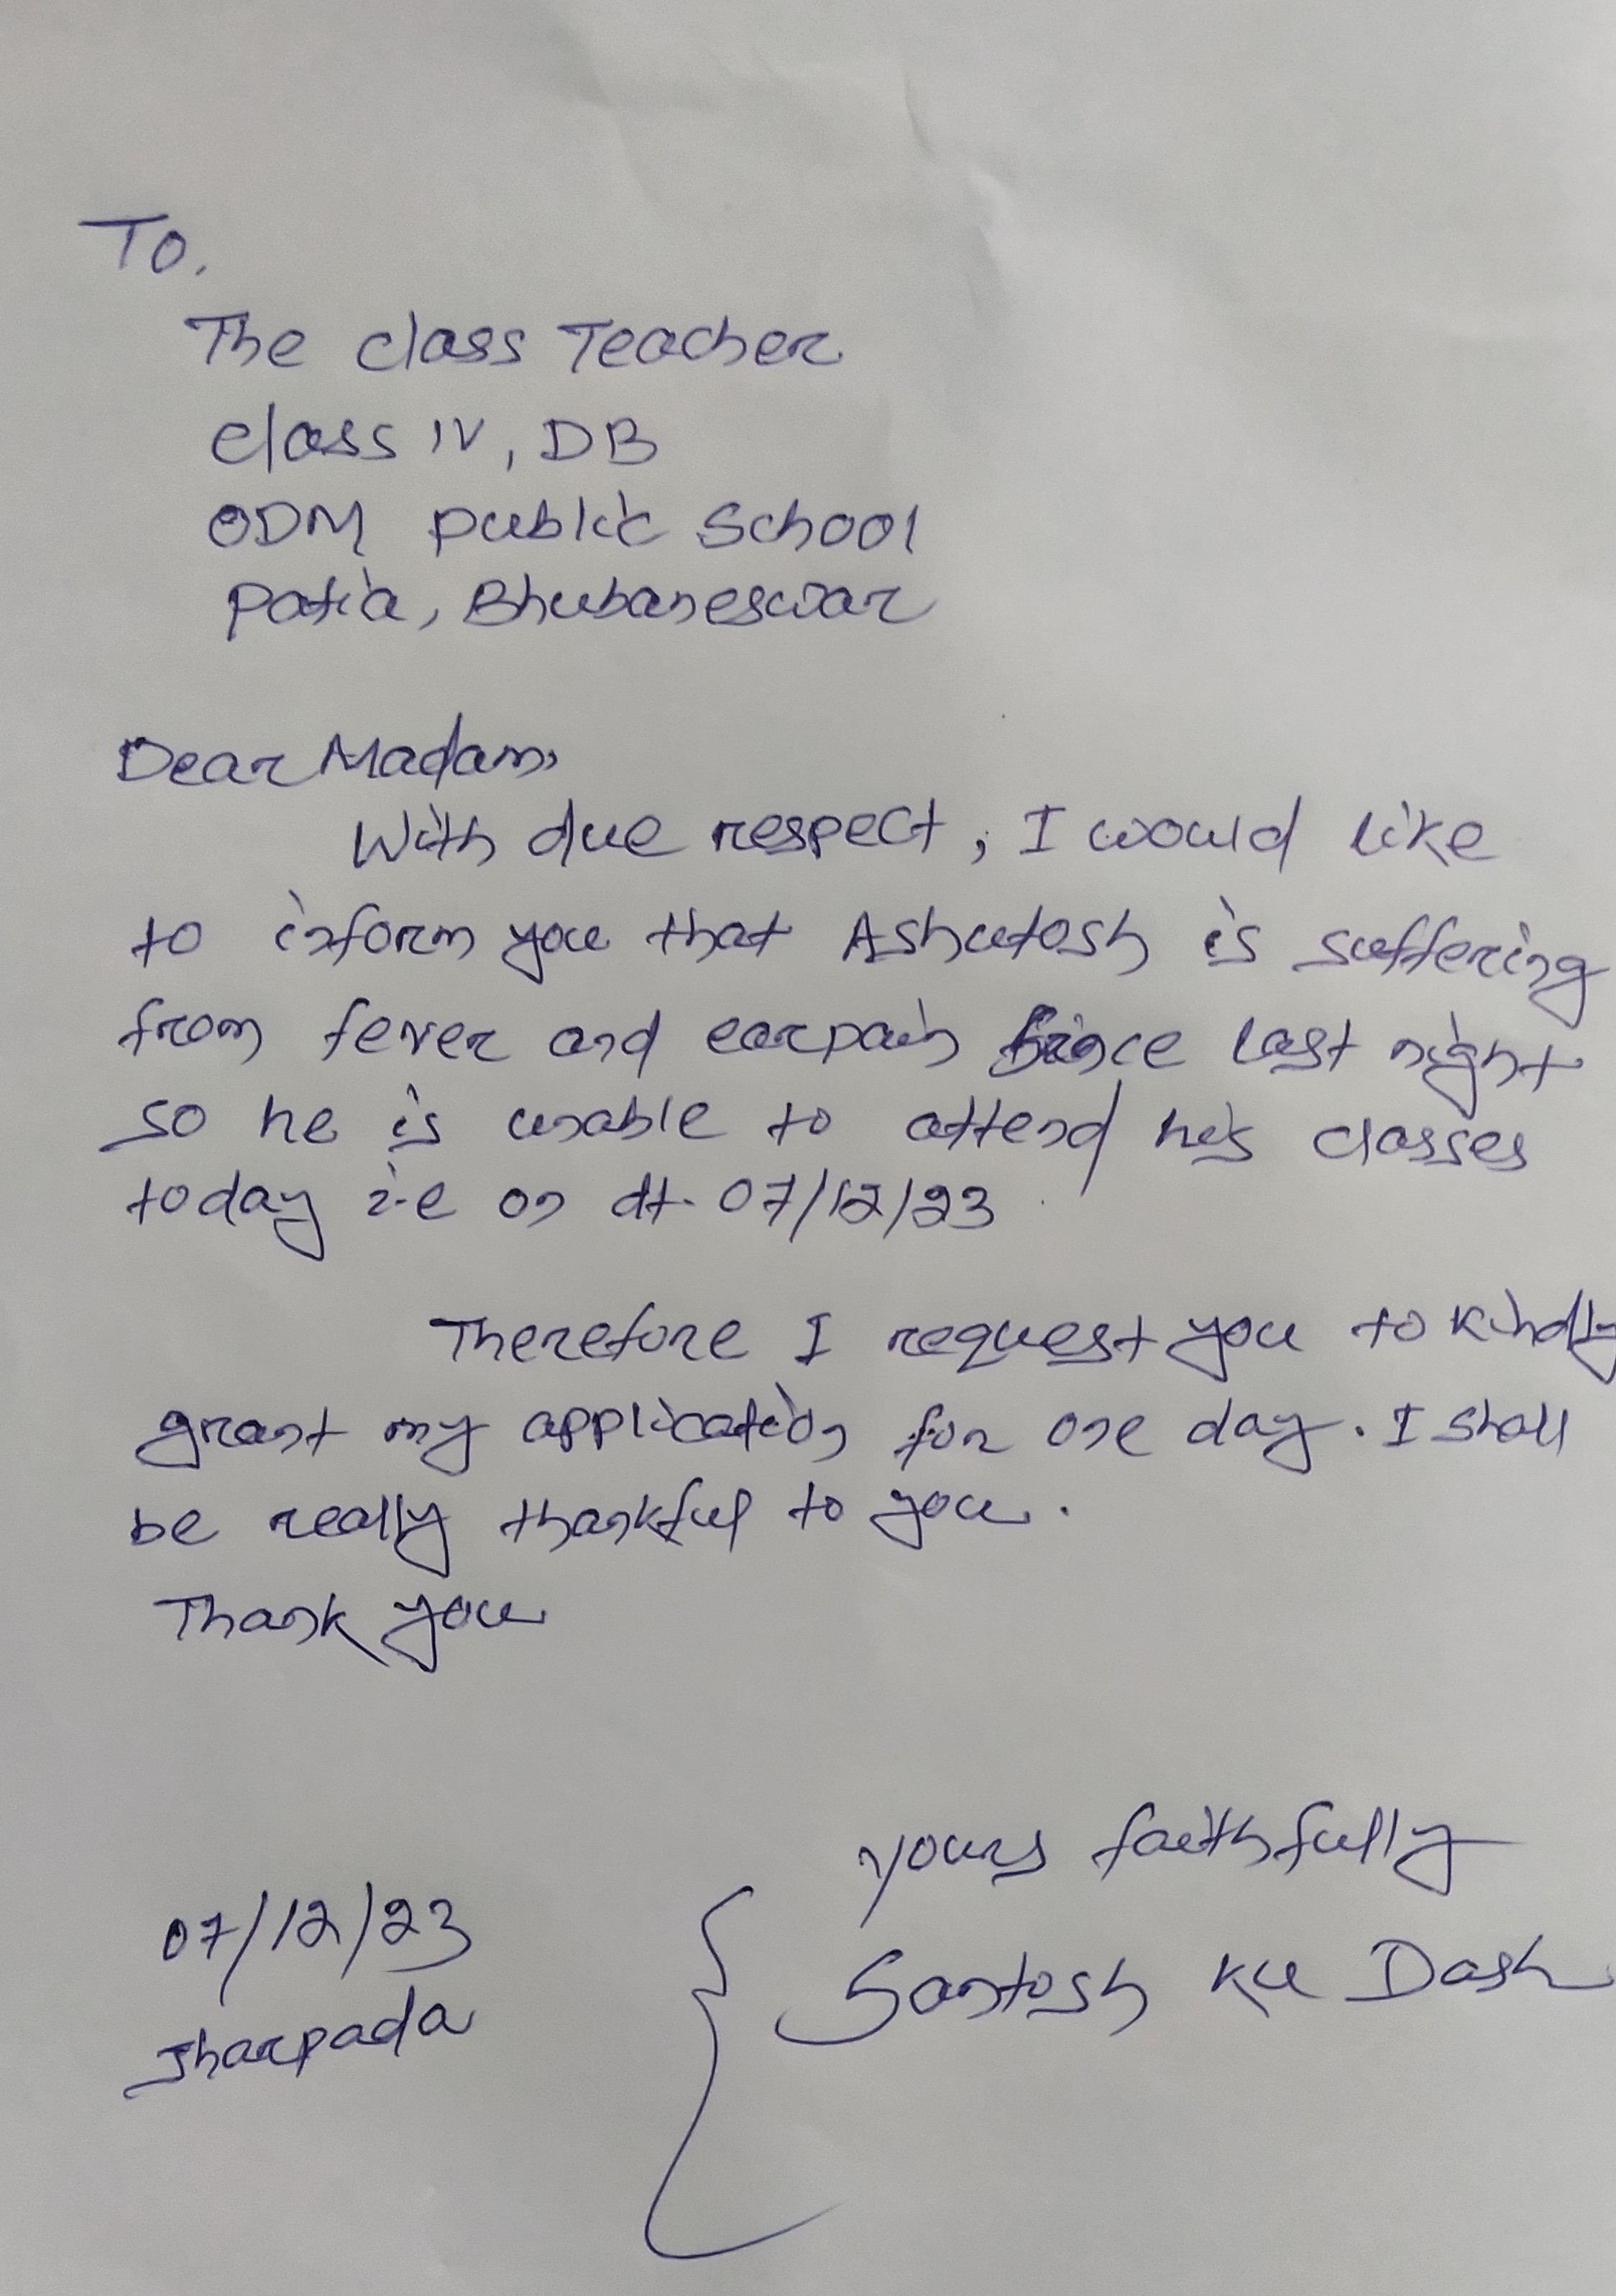 To,
The class Teacher
class IV, DB
ODM public School
Patia, Bhubaneswar
Dear Madam,
With due respect, I would like
to inform you that Ashutosh is suffering
from fever and earpain since last night
so he is unable to attend his classes
today i.e on dt. 07/12/23
Therefore I request you to kindly
grant my application for one day. I shall
be really thankful to you.
Thank you
yours faithfully
Santosh Ku Dash
07/12/23
Jharpada